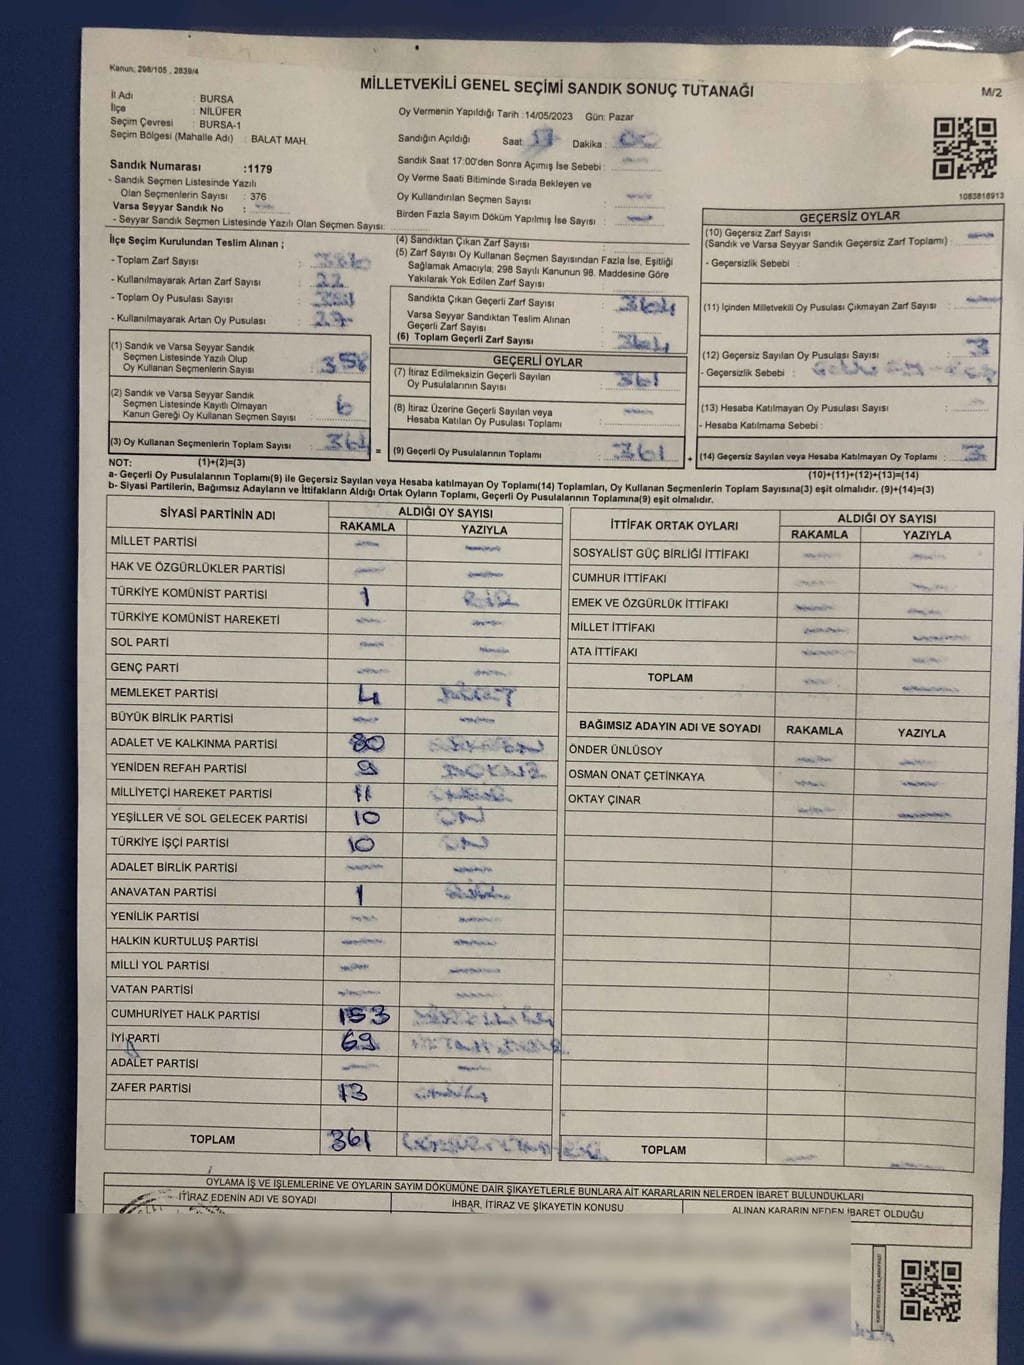 Kanun, 298/105 , 2839/4
MİLLETVEKİLİ GENEL SEÇİMİ SANDIK SONUÇ TUTANAĞI
M/2
İl Adı : BURSA
İlçe : NİLÜFER
Seçim Çevresi : BURSA-1
Seçim Bölgesi (Mahalle Adı) : BALAT MAH.
Sandık Numarası :1179
- Sandık Seçmen Listesinde Yazılı
Olan Seçmenlerin Sayısı : 376
Varsa Seyyar Sandık No :
- Seyyar Sandık Seçmen Listesinde Yazılı Olan Seçmen Sayısı:
Oy Vermenin Yapıldığı Tarih :14/05/2023 Gün: Pazar
Sandığın Açıldığı Saat 17 Dakika : 00
Sandık Saat 17:00'den Sonra Açımış İse Sebebi :
Oy Verme Saati Bitiminde Sırada Bekleyen ve
Oy Kullandırılan Seçmen Sayısı :
Birden Fazla Sayım Döküm Yapılmış İse Sayısı :
1083818913
İlçe Seçim Kurulundan Teslim Alınan ;
- Toplam Zarf Sayısı : 380
- Kullanılmayarak Artan Zarf Sayısı : 22
- Toplam Oy Pusulası Sayısı :
- Kullanılmayarak Artan Oy Pusulası :
(1) Sandık ve Varsa Seyyar Sandık
Seçmen Listesinde Yazılı Olup
Oy Kullanan Seçmenlerin Sayısı : 358
(2) Sandık ve Varsa Seyyar Sandık
Seçmen Listesinde Kayıtlı Olmayan
Kanun Gereği Oy Kullanan Seçmen Sayısı : 6
(3) Oy Kullanan Seçmenlerin Toplam Sayısı : 364 =
(4) Sandıktan Çıkan Zarf Sayısı :
(5) Zarf Sayısı Oy Kullanan Seçmen Sayısından Fazla İse, Eşitliği
Sağlamak Amacıyla, 298 Sayılı Kanunun 98. Maddesine Göre
Yakılarak Yok Edilen Zarf Sayısı :
Sandıkta Çıkan Geçerli Zarf Sayısı : 364
Varsa Seyyar Sandıktan Teslim Alınan
Geçerli Zarf Sayısı :
(6) Toplam Geçerli Zarf Sayısı : 364
GEÇERLİ OYLAR
(7) İtiraz Edilmeksizin Geçerli Sayılan
Oy Pusulalarının Sayısı : 361
(8) İtiraz Üzerine Geçerli Sayılan veya
Hesaba Katılan Oy Pusulası Toplamı :
(9) Geçerli Oy Pusulalarının Toplamı : 361 +
GEÇERSİZ OYLAR
(10) Geçersiz Zarf Sayısı
(Sandık ve Varsa Seyyar Sandık Geçersiz Zarf Toplamı) :
- Geçersizlik Sebebi :
(11) İçinden Milletvekili Oy Pusulası Çıkmayan Zarf Sayısı :
(12) Geçersiz Sayılan Oy Pusulası Sayısı : 3
- Geçersizlik Sebebi :
(13) Hesaba Katılmayan Oy Pusulası Sayısı :
- Hesaba Katılmama Sebebi :
(14) Geçersiz Sayılan veya Hesaba Katılmayan Oy Toplamı : 3
NOT: (1)+(2)=(3)
(10)+(11)+(12)+(13)=(14)
a- Geçerli Oy Pusulasının Toplamı(9) ile Geçersiz Sayılan veya Hesaba katılmayan Oy Toplamı(14) Toplamları, Oy Kullanan Seçmenlerin Toplam Sayısına(3) eşit olmalıdır. (9)+(14)=(3)
b- Siyasi Partilerin, Bağımsız Adayların ve İttifakların Aldığı Ortak Oyların Toplamı, Geçerli Oy Pusulalarının Toplamına(9) eşit olmalıdır.
SİYASİ PARTİNİN ADI
ALDIĞI OY SAYISI
RAKAMLA YAZIYLA
MİLLET PARTİSİ
HAK VE ÖZGÜRLÜKLER PARTİSİ
TÜRKİYE KOMÜNİST PARTİSİ 1 BİR
TÜRKİYE KOMÜNİST HAREKETİ
SOL PARTİ
GENÇ PARTİ
MEMLEKET PARTİSİ 4 DÖRT
BÜYÜK BİRLİK PARTİSİ
ADALET VE KALKINMA PARTİSİ 80 SEKSEN
YENİDEN REFAH PARTİSİ 9 DOKUZ
MİLLİYETÇİ HAREKET PARTİSİ 11
YEŞİLLER VE SOL GELECEK PARTİSİ 10 ON
TÜRKİYE İŞÇİ PARTİSİ 10 ON
ADALET BİRLİK PARTİSİ
ANAVATAN PARTİSİ 1
YENİLİK PARTİSİ
HALKIN KURTULUŞ PARTİSİ
MİLLİ YOL PARTİSİ
VATAN PARTİSİ
CUMHURİYET HALK PARTİSİ 153
İYİ PARTİ 69
ADALET PARTİSİ
ZAFER PARTİSİ 13
TOPLAM 361
İTTİFAK ORTAK OYLARI
ALDIĞI OY SAYISI
RAKAMLA YAZIYLA
SOSYALİST GÜÇ BİRLİĞİ İTTİFAKI
CUMHUR İTTİFAKI
EMEK VE ÖZGÜRLÜK İTTİFAKI
MİLLET İTTİFAKI
ATA İTTİFAKI
TOPLAM
BAĞIMSIZ ADAYIN ADI VE SOYADI RAKAMLA YAZIYLA
ÖNDER ÜNLÜSOY
OSMAN ONAT ÇETİNKAYA
OKTAY ÇINAR
TOPLAM
OYLAMA İŞ VE İŞLEMLERİNE VE OYLARIN SAYIM DÖKÜMÜNE DAİR ŞİKAYETLERLE BUNLARA AİT KARARLARIN NELERDEN İBARET BULUNDUKLARI
İTİRAZ EDENİN ADI VE SOYADI
İHBAR, İTİRAZ VE ŞİKAYETİN KONUSU
ALINAN KARARIN NEDEN İBARET OLDUĞU